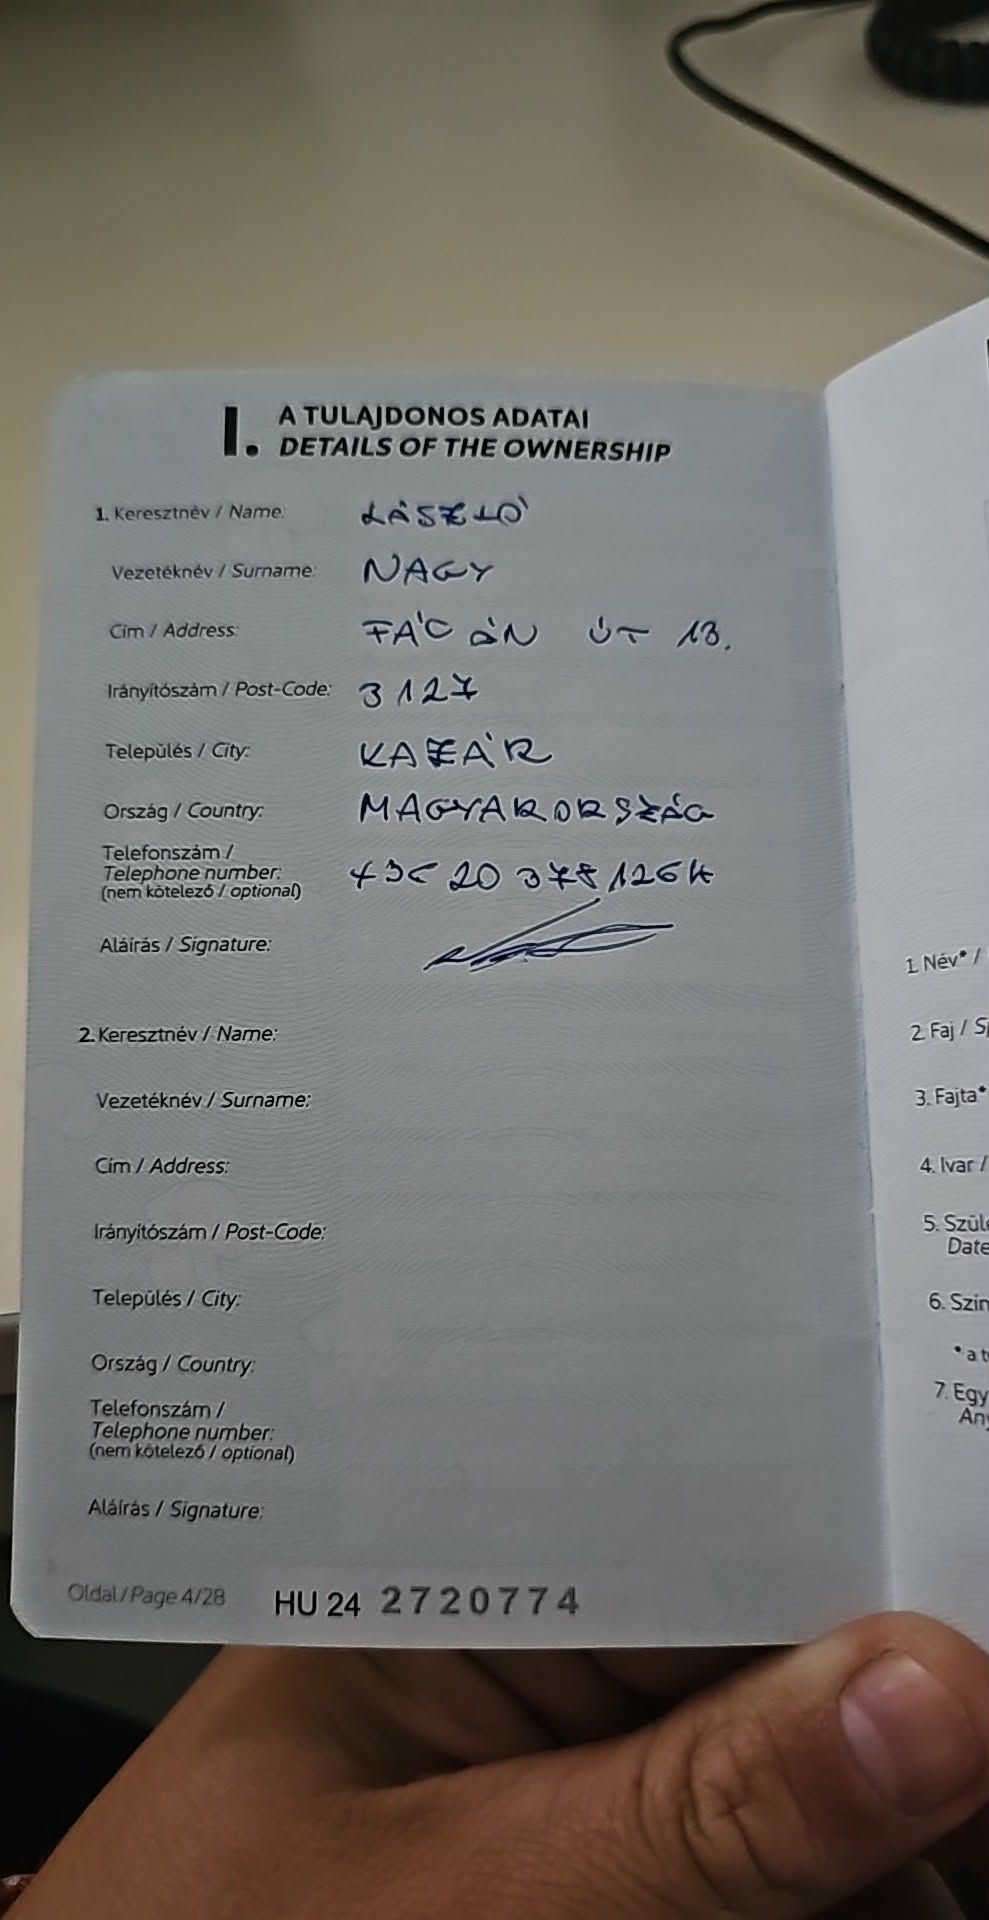 I. A TULAJDONOS ADATAI
DETAILS OF THE OWNERSHIP
1. Keresztnév / Name: LÁSZLÓ
Vezetéknév / Surname: NAGY
Cím / Address: FÁCÁN ÚT 13.
Irányítószám / Post-Code: 3127
Település / City: KAZÁR
Ország / Country: MAGYARORSZÁG
Telefonszám /
Telephone number: +36 20 378 1264
(nem kötelező / optional)
Aláírás / Signature:
2. Keresztnév / Name:
Vezetéknév / Surname:
Cím / Address:
Irányítószám / Post-Code:
Település / City:
Ország / Country:
Telefonszám /
Telephone number:
(nem kötelező / optional)
Aláírás / Signature:
Oldal / Page 4/28 HU 24 2720774
1. Név* /
2. Faj /
3. Fajta*
4. Ivar /
5.
Date
6.
* a
7.